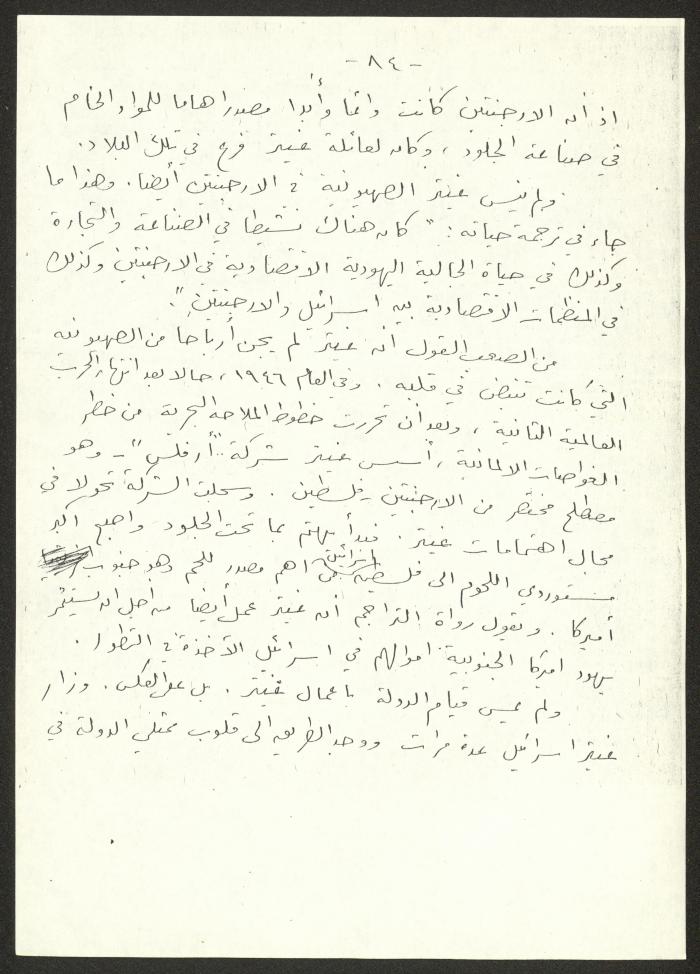 - ٨٤ -
اذ أن الارجنتين كانت دائما وأبدا مصدرا هاما للمواد الخام
في صناعة الجلود ، وكان لعائلة غيتر فرع في تلك البلاد .
ولم ينس غيتر الصهيونية في الارجنتين أيضا . وهذا ما
جاء في ترجمة حياته : " كان هناك نشيطا في الصناعة والتجارة
وكذلك في حياة الجالية اليهودية الاقتصادية في الارجنتين وكذلك
في المنظمات الاقتصادية بين اسرائيل والارجنتين " .
من الصعب القول أن غيتر لم يجن أرباحا من الصهيونية
التي كانت تنبض في قلبه . وفي العام ١٩٤٦ ، حالا بعد انتهاء الحرب
العالمية الثانية ، وبعد أن تحررت خطوط الملاحة البحرية من خطر
الغواصات الالمانية ، أسس غيتر شركة " أرفلس " - وهو
مصطلح مختصر من الارجنتين - فلسطين . وسجلت الشركة تحولا في
مجال اهتمامات غيتر . فبدأ يهتم بما تحت الجلود واصبح اكبر
مستوردي اللحوم الى فلسطين من اهم مصدر للحم وهو جنوب
أميركا . وتقول رواة التراجم أن غيتر عمل أيضا من اجل ان يستثمر
يهود اميركا الجنوبية اموالهم في اسرائيل الآخذة في التطور .
ولم يمس قيام الدولة باعمال غيتر . بل على العكس . وزار
غيتر اسرائيل عدة مرات ووجد الطريق الى قلوب ممثلي الدولة في